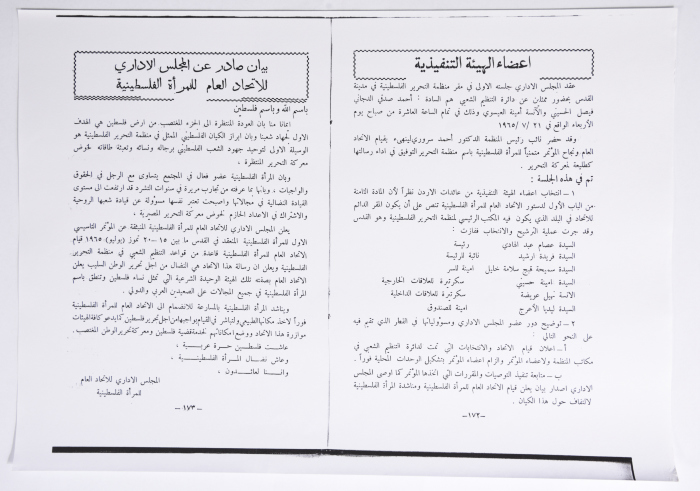 اعضاء الهيئة التنفيذية
عقد المجلس الاداري جلسته الاولى في مقر منظمة التحرير الفلسطينية في مدينة
القدس بحضور ممثلين عن دائرة التنظيم الشعبي هم السادة : أحمد صدقي الدجاني
فيصل الحسيني والآنسة أمينة العيسوي وذلك في تمام الساعة العاشرة من صباح يوم
الأربعاء الواقع في ٢١ /٧ /١٩٦٥
وقد حضر نائب رئيس المنظمة الدكتور أحمد سروري ليهنىء بقيام الاتحاد
العام ونجاح المؤتمر متمنياً للمرأة الفلسطينية باسم منظمة التحرير التوفيق في اداء رسالتها
كطليعة لمعركة التحرير .
تم في هذه الجلسة :
١ – انتخاب اعضاء الهيئة التنفيذية من عائدات الاردن نظراً لأن المادة الثامنة
من الباب الأول لدستور الاتحاد العام للمرأة الفلسطينية تنص على أن يكون المقر الدائم
للاتحاد في البلد الذي يكون فيه المكتب الرئيسي لمنظمة التحرير الفلسطينية وهو القدس
وقد جرت عملية الترشيح والانتخاب ففازت :
السيدة عصام عبد الهادي رئيسة
السيدة فريدة ارشيد نائبة الرئيسة
السيدة سميحة قبج سلامة خليل امينة للسر
السيدة امينة حسيني سكرتيرة للعلاقات الخارجية
الآنسة نهيل عويضة سكرتيرة للعلاقات الداخلية
السيدة ليديا الأعرج امينة للصندوق
٢ – توضيح دور عضو المجلس الاداري ومسؤولياتها في القطر الذي تقيم فيه
على النحو التالي :
أ – اعلان قيام الاتحاد والانتخابات التي تمت لدائرة التنظيم الشعبي في
مكاتب المنظمة ولاعضاء المؤتمر والزام اعضاء المؤتمر بتشكيل الوحدات المحلية فوراً .
ب – متابعة تنفيذ التوصيات والمقررات التي اتخذها المؤتمر كما اوصى المجلس
الاداري اصدار بيان يعلن قيام الاتحاد العام للمرأة الفلسطينية ومناشدة المرأة الفلسطينية
لالتفاف حول هذا الكيان .
–١٧٢–
بيان صادر عن المجلس الاداري
للاتحاد العام للمرأة الفلسطينية
باسم الله وباسم فلسطين
ايمانا منا بان العودة المنتظرة الى الجزء المغتصب من ارض فلسطين هي الهدف
الاول لجهاد شعبنا وبان ابراز الكيان الفلسطيني الممثل في منظمة التحرير الفلسطينية هو
الوسيلة الاولى لتوحيد جهود الشعب الفلسطيني برجاله ونسائه وتعبئة طاقاته لخوض
معركة التحرير المنتظرة ،
وبان المرأة الفلسطينية عضو فعال في المجتمع يتساوى مع الرجل في الحقوق
والواجبات ، وبانها بما عرفته من تجارب مريرة في سنوات التشرد قد ارتفعت الى مستوى
القيادة النضالية في مجالاتها واصبحت تعتبر نفسها مسؤولة عن قيادة شعبها الروحية
والاشتراك في الاعداد الحازم لخوض معركة التحرير المصيرية .
يعلن المجلس الاداري للاتحاد العام للمرأة الفلسطينية المنبثقة عن المؤتمر التأسيسي
الاول للمرأة الفلسطينية المنعقد في القدس ما بين ١٥ – ٢٠ تموز (يوليو) ١٩٦٥ قيام
الاتحاد العام للمرأة الفلسطينية قاعدة من قواعد التنظيم الشعبي في منظمة التحرير
الفلسطينية ويعلن ان رسالة هذا الاتحاد هي النضال من اجل تحرير الوطن السليب يعلن
الاتحاد العام بصفته تلك الهيئة الوحيدة الشرعية التي تمثل نساء فلسطين وتنطق باسم
المرأة الفلسطينية في جميع المجالات على الصعيدين العربي والدولي .
ويناشد المرأة الفلسطينية بالمسارعة للانضمام الى الاتحاد العام للمرأة الفلسطينية
فوراً لاخذ مكانها الطبيعي ولتباشر في القيام بواجبها من اجل تحرير فلسطين كما يدعو كافة الهيئات
موازرة هذا الاتحاد ووضع امكاناتهم لخدمة قضية فلسطين ومعركة تحرير الوطن المغتصب .
عاشت فلسطين حرة عربية ،
وعاش نضال المرأة الفلسطينية ،
واننا لعائدون ،
المجلس الاداري للاتحاد العام
للمرأة الفلسطينية
–١٧٣–